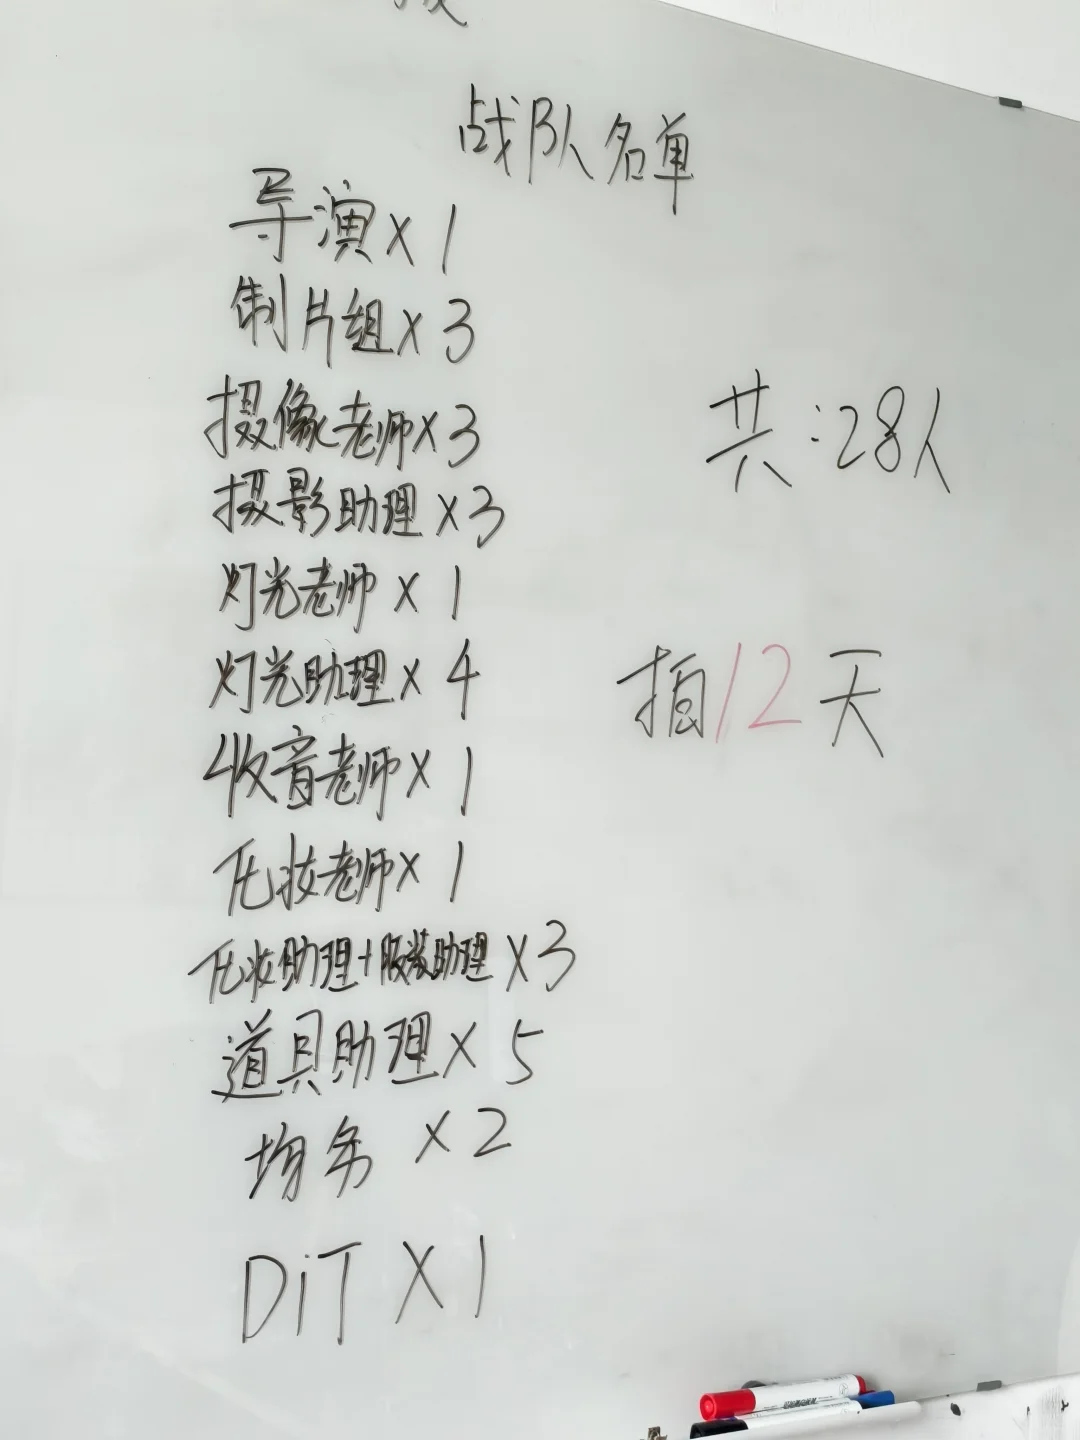 战队名单
导演×1
制片组×3
摄像老师×3
摄影助理×3
灯光老师×1
灯光助理×4
收音老师×1
化妆老师×1
化妆助理+服装助理×3
道具助理×5
场务×2
DiT×1
共:28人
拍12天